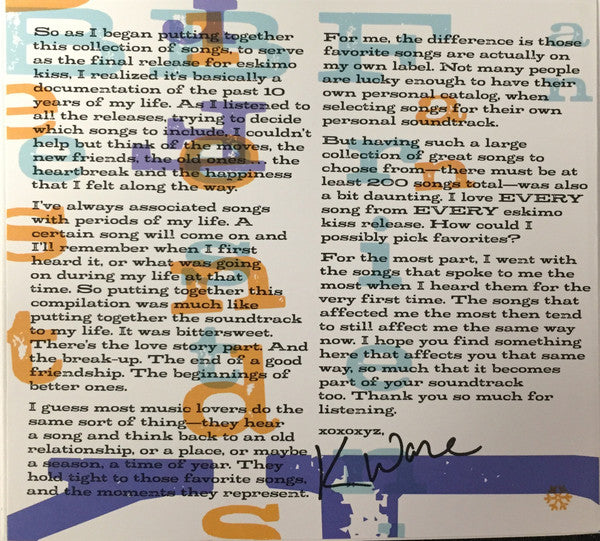 So as I began putting together
this collection of songs, to serve
as the final release for eskimo
kiss, I realized it's basically a
documentation of the past 10
years of my life. As I listened to
all the releases, trying to decide
which songs to include, I couldn't
help but think of the moves, the
new friends, the old ones... the
heartbreak and the happiness
that I felt along the way.
I've always associated songs
with periods of my life. A
certain song will come on and
I'll remember when I first
heard it, or what was going
on during my life at that
time. So putting together this
compilation was much like
putting together the soundtrack
to my life. It was bittersweet.
There's the love story part. And
the break-up. The end of a good
friendship. The beginnings of
better ones.
I guess most music lovers do the
same sort of thing—they hear
a song and think back to an old
relationship, or a place, or maybe
a season, a time of year. They
hold tight to those favorite songs,
and the moments they represent.
For me, the difference is those
favorite songs are actually on
my own label. Not many people
are lucky enough to have their
own personal catalog, when
selecting songs for their own
personal soundtrack.
But having such a large
collection of great songs to
choose from—there must be at
least 200 songs total—was also
a bit daunting. I love EVERY
song from EVERY eskimo
kiss release. How could I
possibly pick favorites?
For the most part, I went with
the songs that spoke to me the
most when I heard them for the
very first time. The songs that
affected me the most then tend
to still affect me the same way
now. I hope you find something
here that affects you that same
way, so much that it becomes
part of your soundtrack
too. Thank you so much for
listening.
xoxoxyz,
K Ware